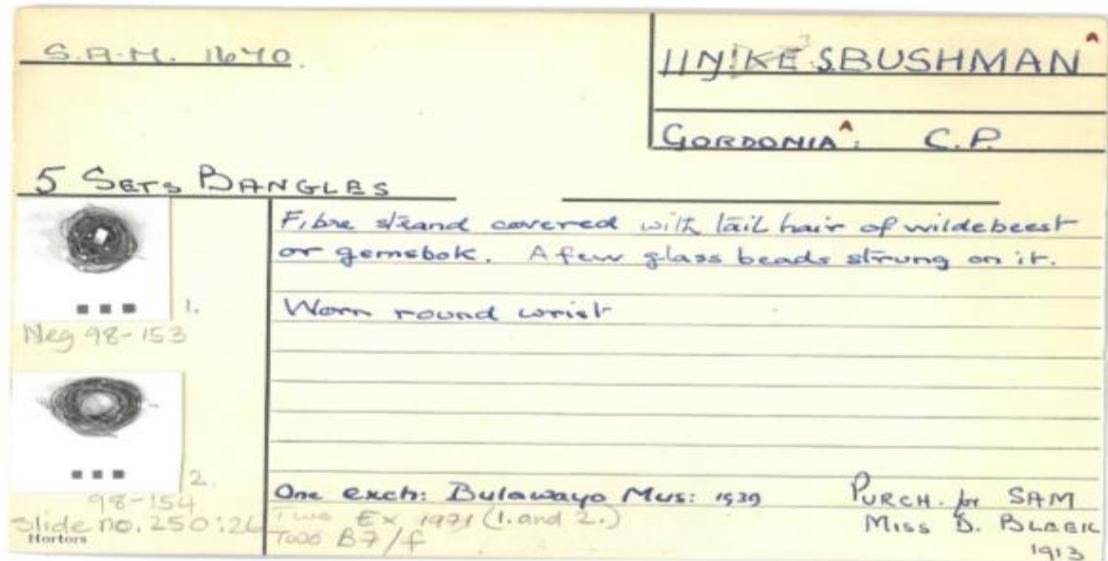 S.A.M. 1640.
BUSHMAN ^
GORDONIA ^: C.P.
5 SETS BANGLES
Fibre strand covered with tail hair of wildebeest
or gemsbok. A few glass beads strung on it.
1.
Neg 98-153
Worn round wrist
2.
98-154
Slide no. 250:26
Hortors
One exch: Bulawayo Mus: 1939
Two Ex 1971 (1. and 2.)
B7/f
PURCH. for SAM
MISS D. BLEEK
1913